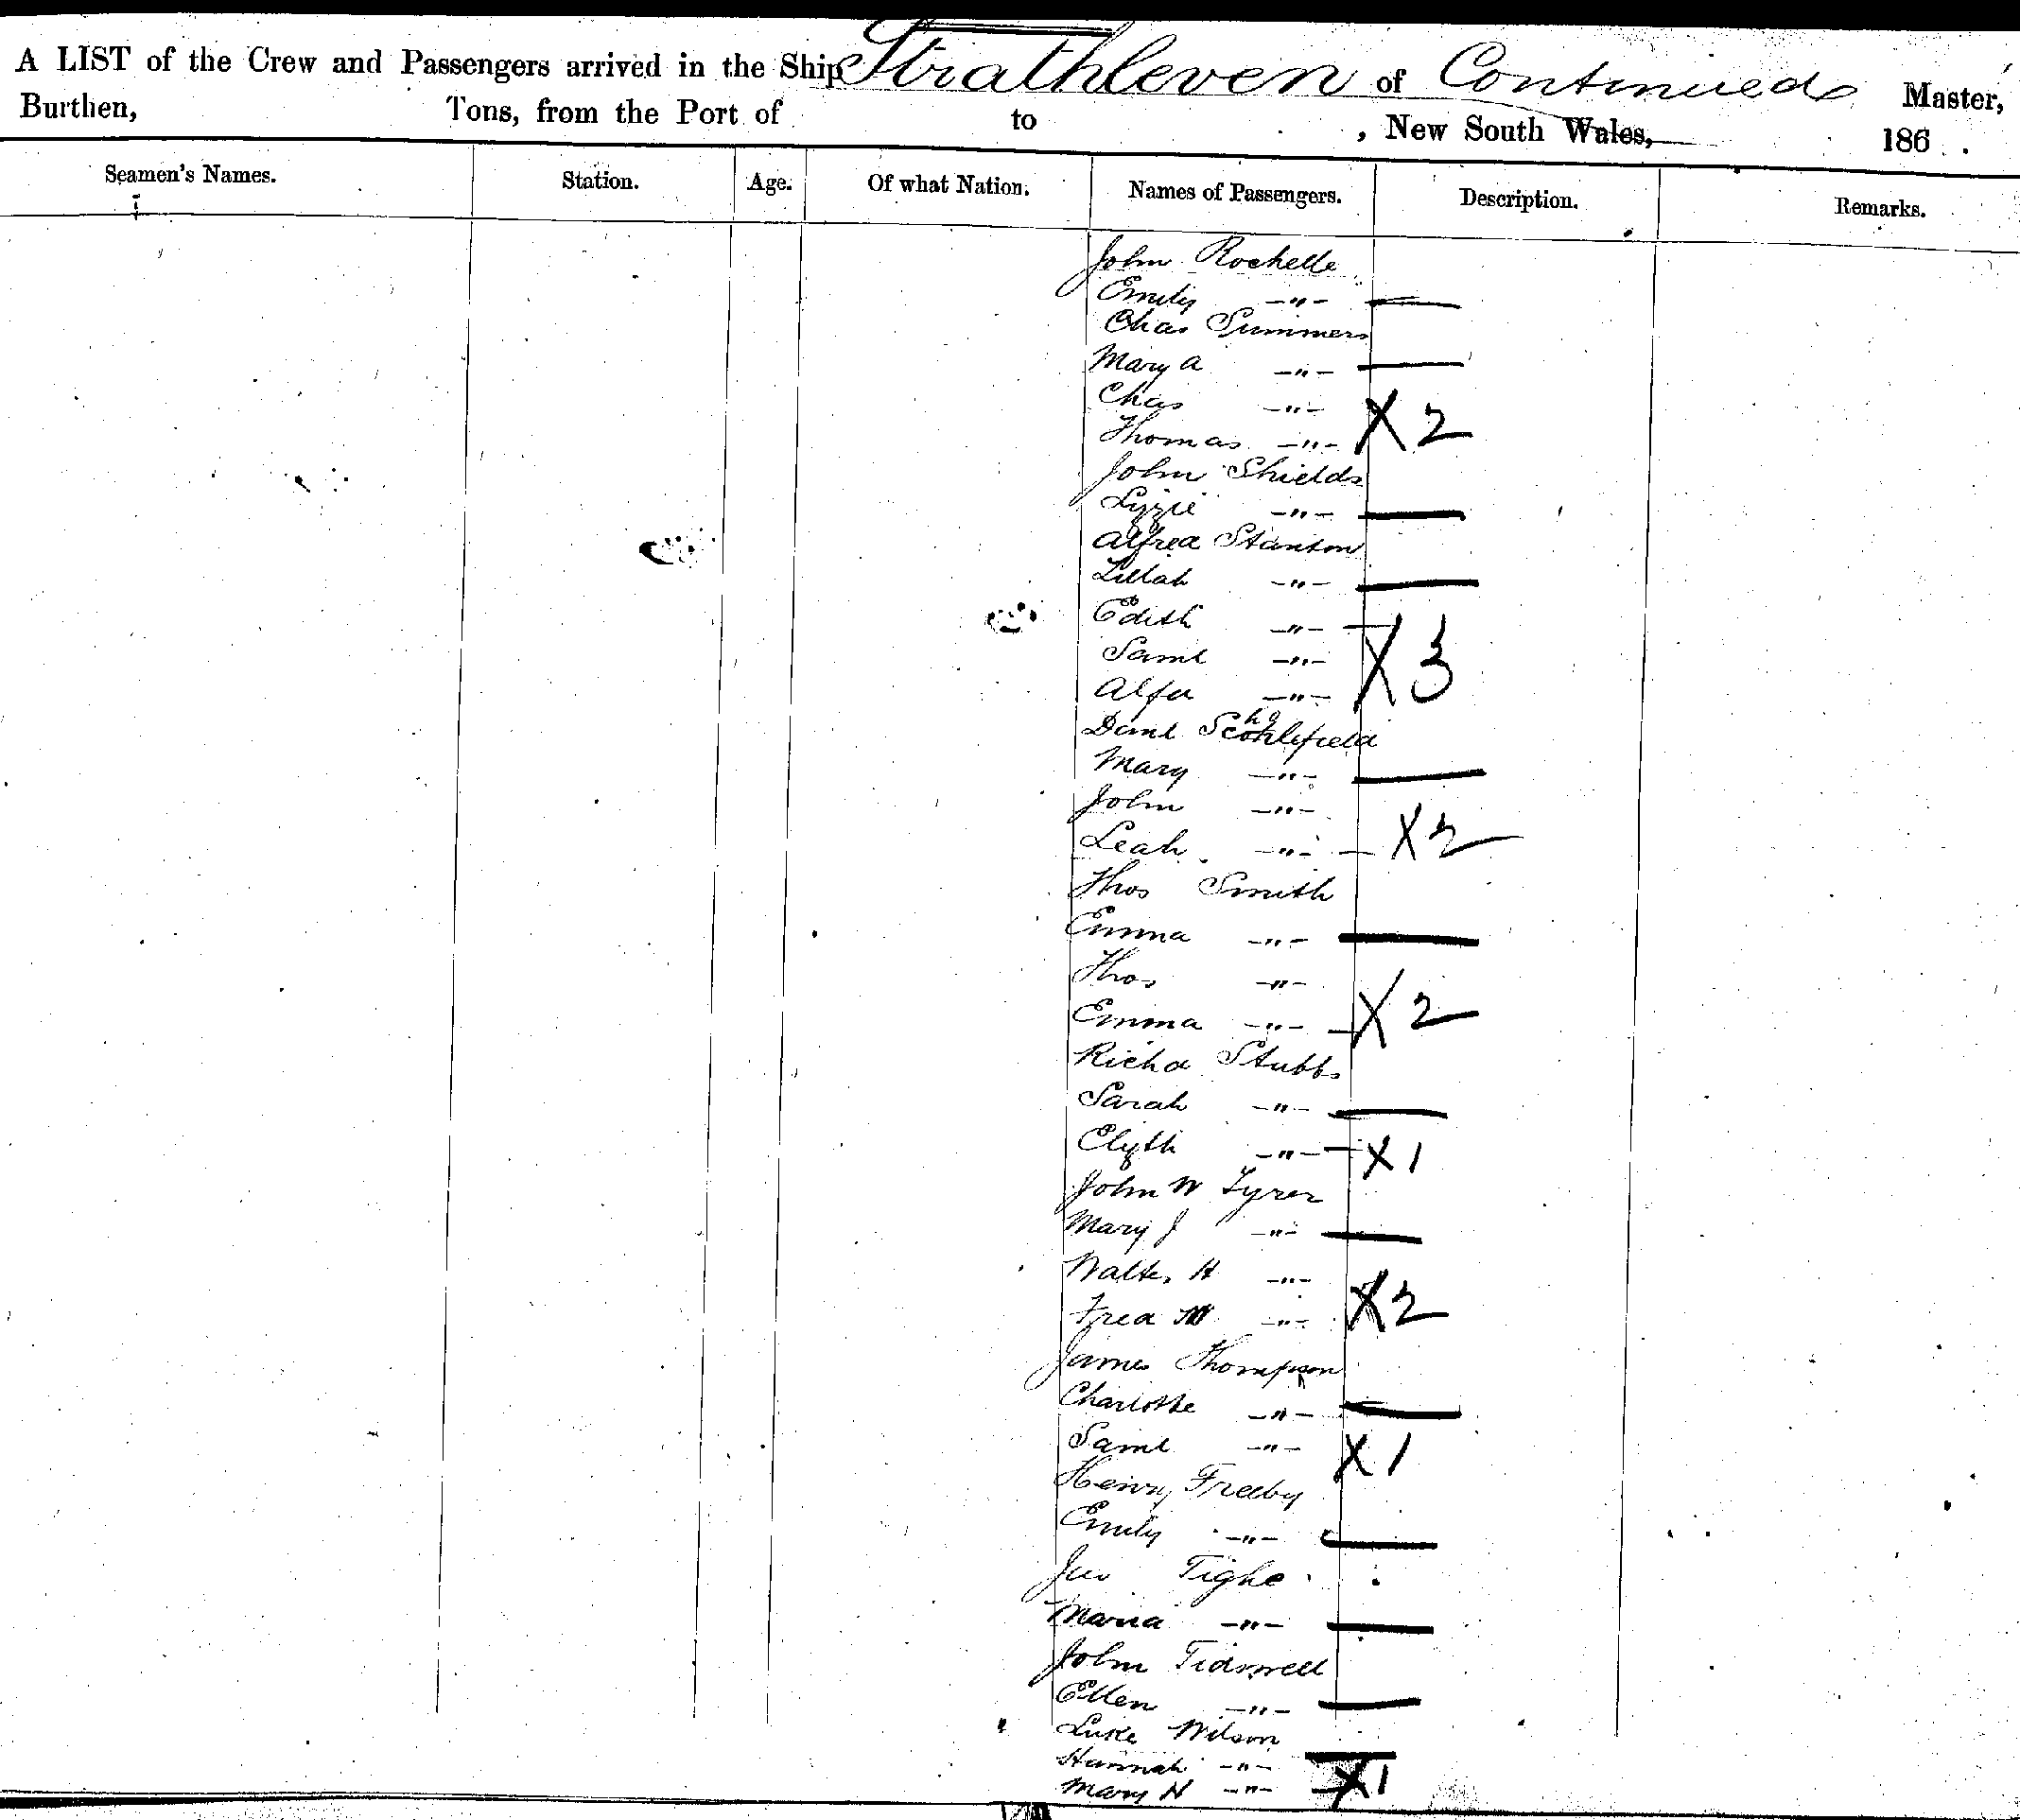 A LIST of the Crew and Passengers arrived in the Ship Strathleven of Continued Master,
Burthen, Tons, from the Port of to , New South Wales, 186 .
Seamen's Names. Station. Age. Of what Nation. Names of Passengers. Description. Remarks.
John Rochelle
Emily -"-
Chas Summers
Mary A -"-
Chas -"-
Thomas -"- X 2
John Shields
Lizzie -"-
Alfred Stanton
Lillah -"-
Edith -"-
Saml -"- X 3
Alfd -"-
Danl Schofield
Mary -"-
John -"-
Leah -"- X 2
Thos Smith
Emma -"-
Thos -"-
Emma -"- X 2
Richd Stubbs
Sarah -"-
Elizth -"- X 1
John W Tyrer
Mary J -"-
Walter H -"-
Fred W -"- X 2
James Thompson
Charlotte -"-
Saml -"- X 1
Henry Freeby
Emily -"-
Jno Tighe
Maria -"-
John Tidswell
Ellen -"-
Luke Wilson
Hannah -"-
Mary H -"- X 1